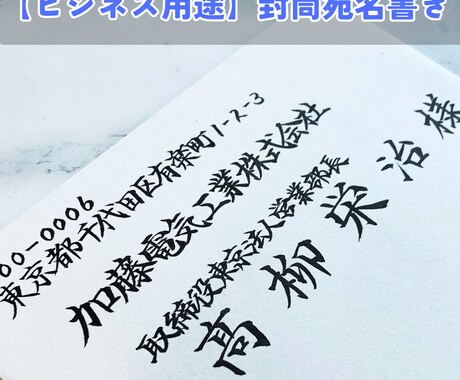 【ビジネス用途】封筒宛名書き
00-0006
東京都千代田区有楽町1-2-3
加藤電気工業株式会社
取締役東京法人営業部長
髙柳栄治様